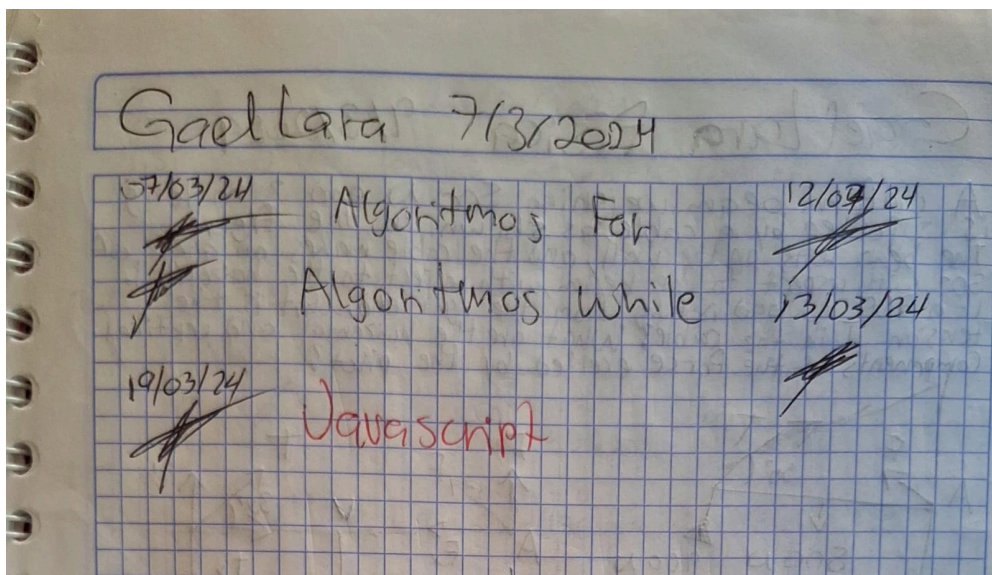 Gael Lara 7/3/2024
07/03/24 Algoritmos For 12/03/24
Algoritmos While 13/03/24
19/03/24 Javascript